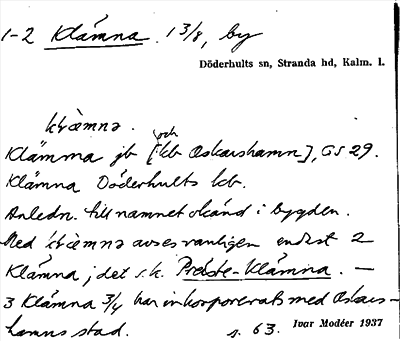 1-2 Klämna. 1 3/8, by
Döderhults sn, Stranda hd, Kalm. l.
klæmna.
Klämma jb [och kb Oskarshamn], GS 29.
Klämna Döderhults kb.
Anledn. till namnet okänd i bygden.
Med klæmna avses vanligen endast 2
Klämna, det s.k. Präste-Klämna. —
3 Klämna 3/4 har inkorporerats med Oskars-
hamns stad. s. 63. Ivar Modéer 1937